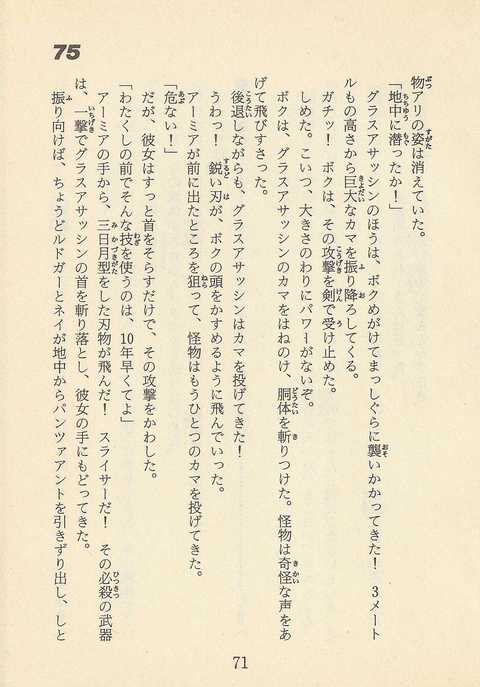 75
物アリの姿は消えていた。
「地中に潜ったか！」
グラスアサッシンのほうは、ボクめがけてまっしぐらに襲いかかってきた！　3メート
ルもの高さから巨大なカマを振り降ろしてくる。
ガチッ！　ボクは、その攻撃を剣で受け止めた。
しめた。こいつ、大きさのわりにパワーがないぞ。
ボクは、グラスアサッシンのカマをはねのけ、胴体を斬りつけた。怪物は奇怪な声をあ
げて飛びすさった。
後退しながらも、グラスアサッシンはカマを投げてきた！
うわっ！　鋭い刃が、ボクの頭をかすめるように飛んでいった。
アーミアが前に出たところを狙って、怪物はもうひとつのカマを投げてきた。
「危ない！」
だが、彼女はすっと首をそらすだけで、その攻撃をかわした。
「わたくしの前でそんな技を使うのは、10年早くてよ」
アーミアの手から、三日月型をした刃物が飛んだ！　スライサーだ！　その必殺の武器
は、一撃でグラスアサッシンの首を斬り落とし、彼女の手にもどってきた。
振り向けば、ちょうどルドガーとネイが地中からパンツァアントを引きずり出し、しと
71